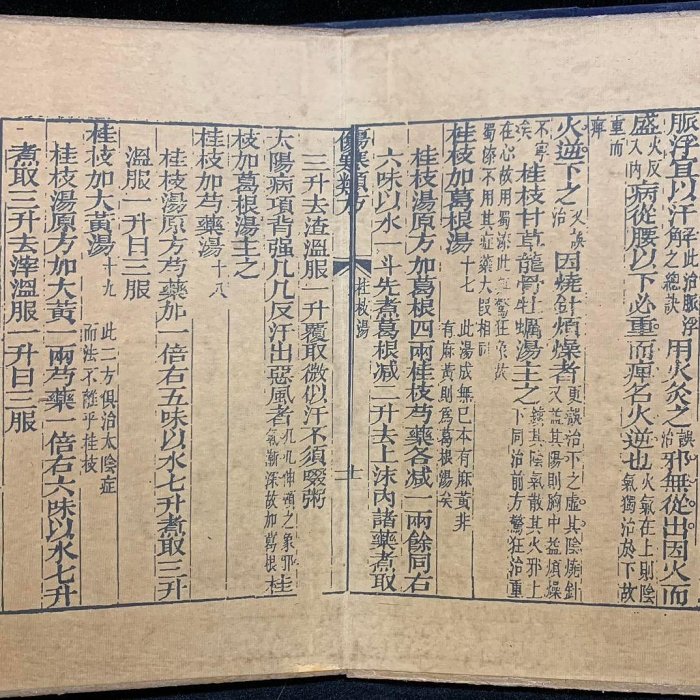 脈浮宜以汗解之此治脈浮之總訣用火灸之誤治邪無從出因火而
盛火反入內病從腰以下必重而痺名火逆也火氣在上則陰氣獨治於下故
重而痺
火逆下之又誤治因燒針煩燥者更誤治下之虛其陰燒針又益其陽則胸中益煩燥
不寧矣桂枝甘草龍骨牡蠣湯主之鎮其陰氣散其火邪上下同治前方驚狂治重
在心故用蜀漆此無驚狂象故蜀漆不用其症藥大段相同
桂枝加葛根湯十七此湯成無己本有麻黃非有麻黃則爲葛根湯矣
桂枝湯原方加葛根四兩桂枝芍藥各減一兩餘同右
六味以水一斗先煮葛根減二升去上沫內諸藥煮取
傷寒類方
桂枝湯
十一
三升去渣溫服一升覆取微似汗不須啜粥
太陽病項背强几几反汗出惡風者几几伸頸之象邪氣漸深故加葛根桂
枝加葛根湯主之
桂枝加芍藥湯十八
桂枝湯原方芍藥加一倍右五味以水七升煮取三升
溫服一升日三服
桂枝加大黃湯十九此二方俱治太陰症而法不離乎桂枝
桂枝湯原方加大黃一兩芍藥一倍右六味以水七升
煮取三升去滓溫服一升日三服